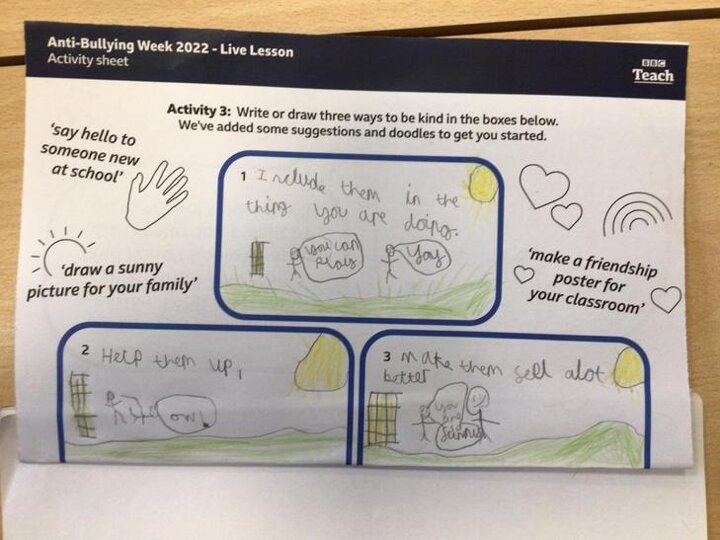 Anti-Bullying Week 2022 - Live Lesson
Activity sheet
BBC
Teach
Activity 3: Write or draw three ways to be kind in the boxes below.
We've added some suggestions and doodles to get you started.
'say hello to
someone new
at school'
'draw a sunny
picture for your family'
1 Include them in the
thing you are doing.
you can
play
Yay
'make a friendship
poster for
your classroom'
2 Help them up,
ow!
3 make them feel alot
better
you
are